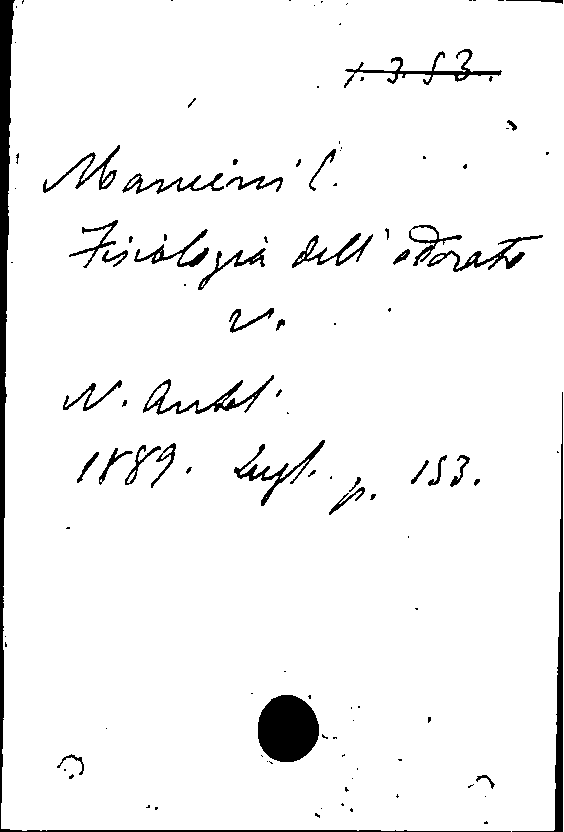 1.3.53.
Mancini C.
Fisiologia dell'odorato
v.
N. Antol.
1889. Lugl. p. 153.